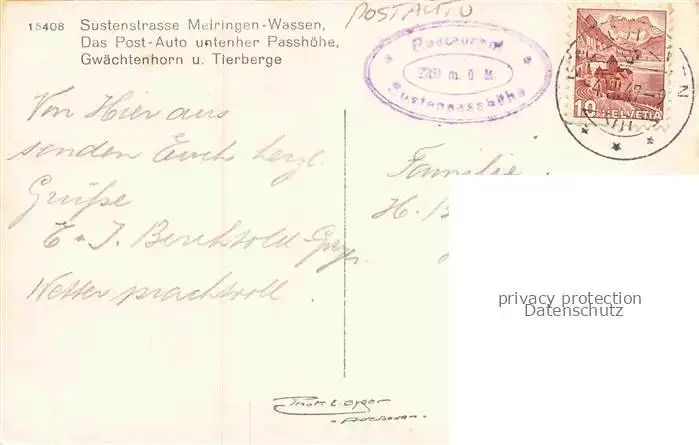 15408 Sustenstrasse Meiringen-Wassen,
Das Post-Auto untenher Passhöhe,
Gwächtenhorn u. Tierberge
POSTAUTO
Restaurant
m. ü. M.
Sustenpasshöhe
10 HELVETIA
Von Hier aus
senden Euch herzl.
Grüße
E. + J. Berchtold
Wetter prachtvoll
Familie
H. B
privacy protection
Datenschutz
Phot. E. Gyger
Adelboden